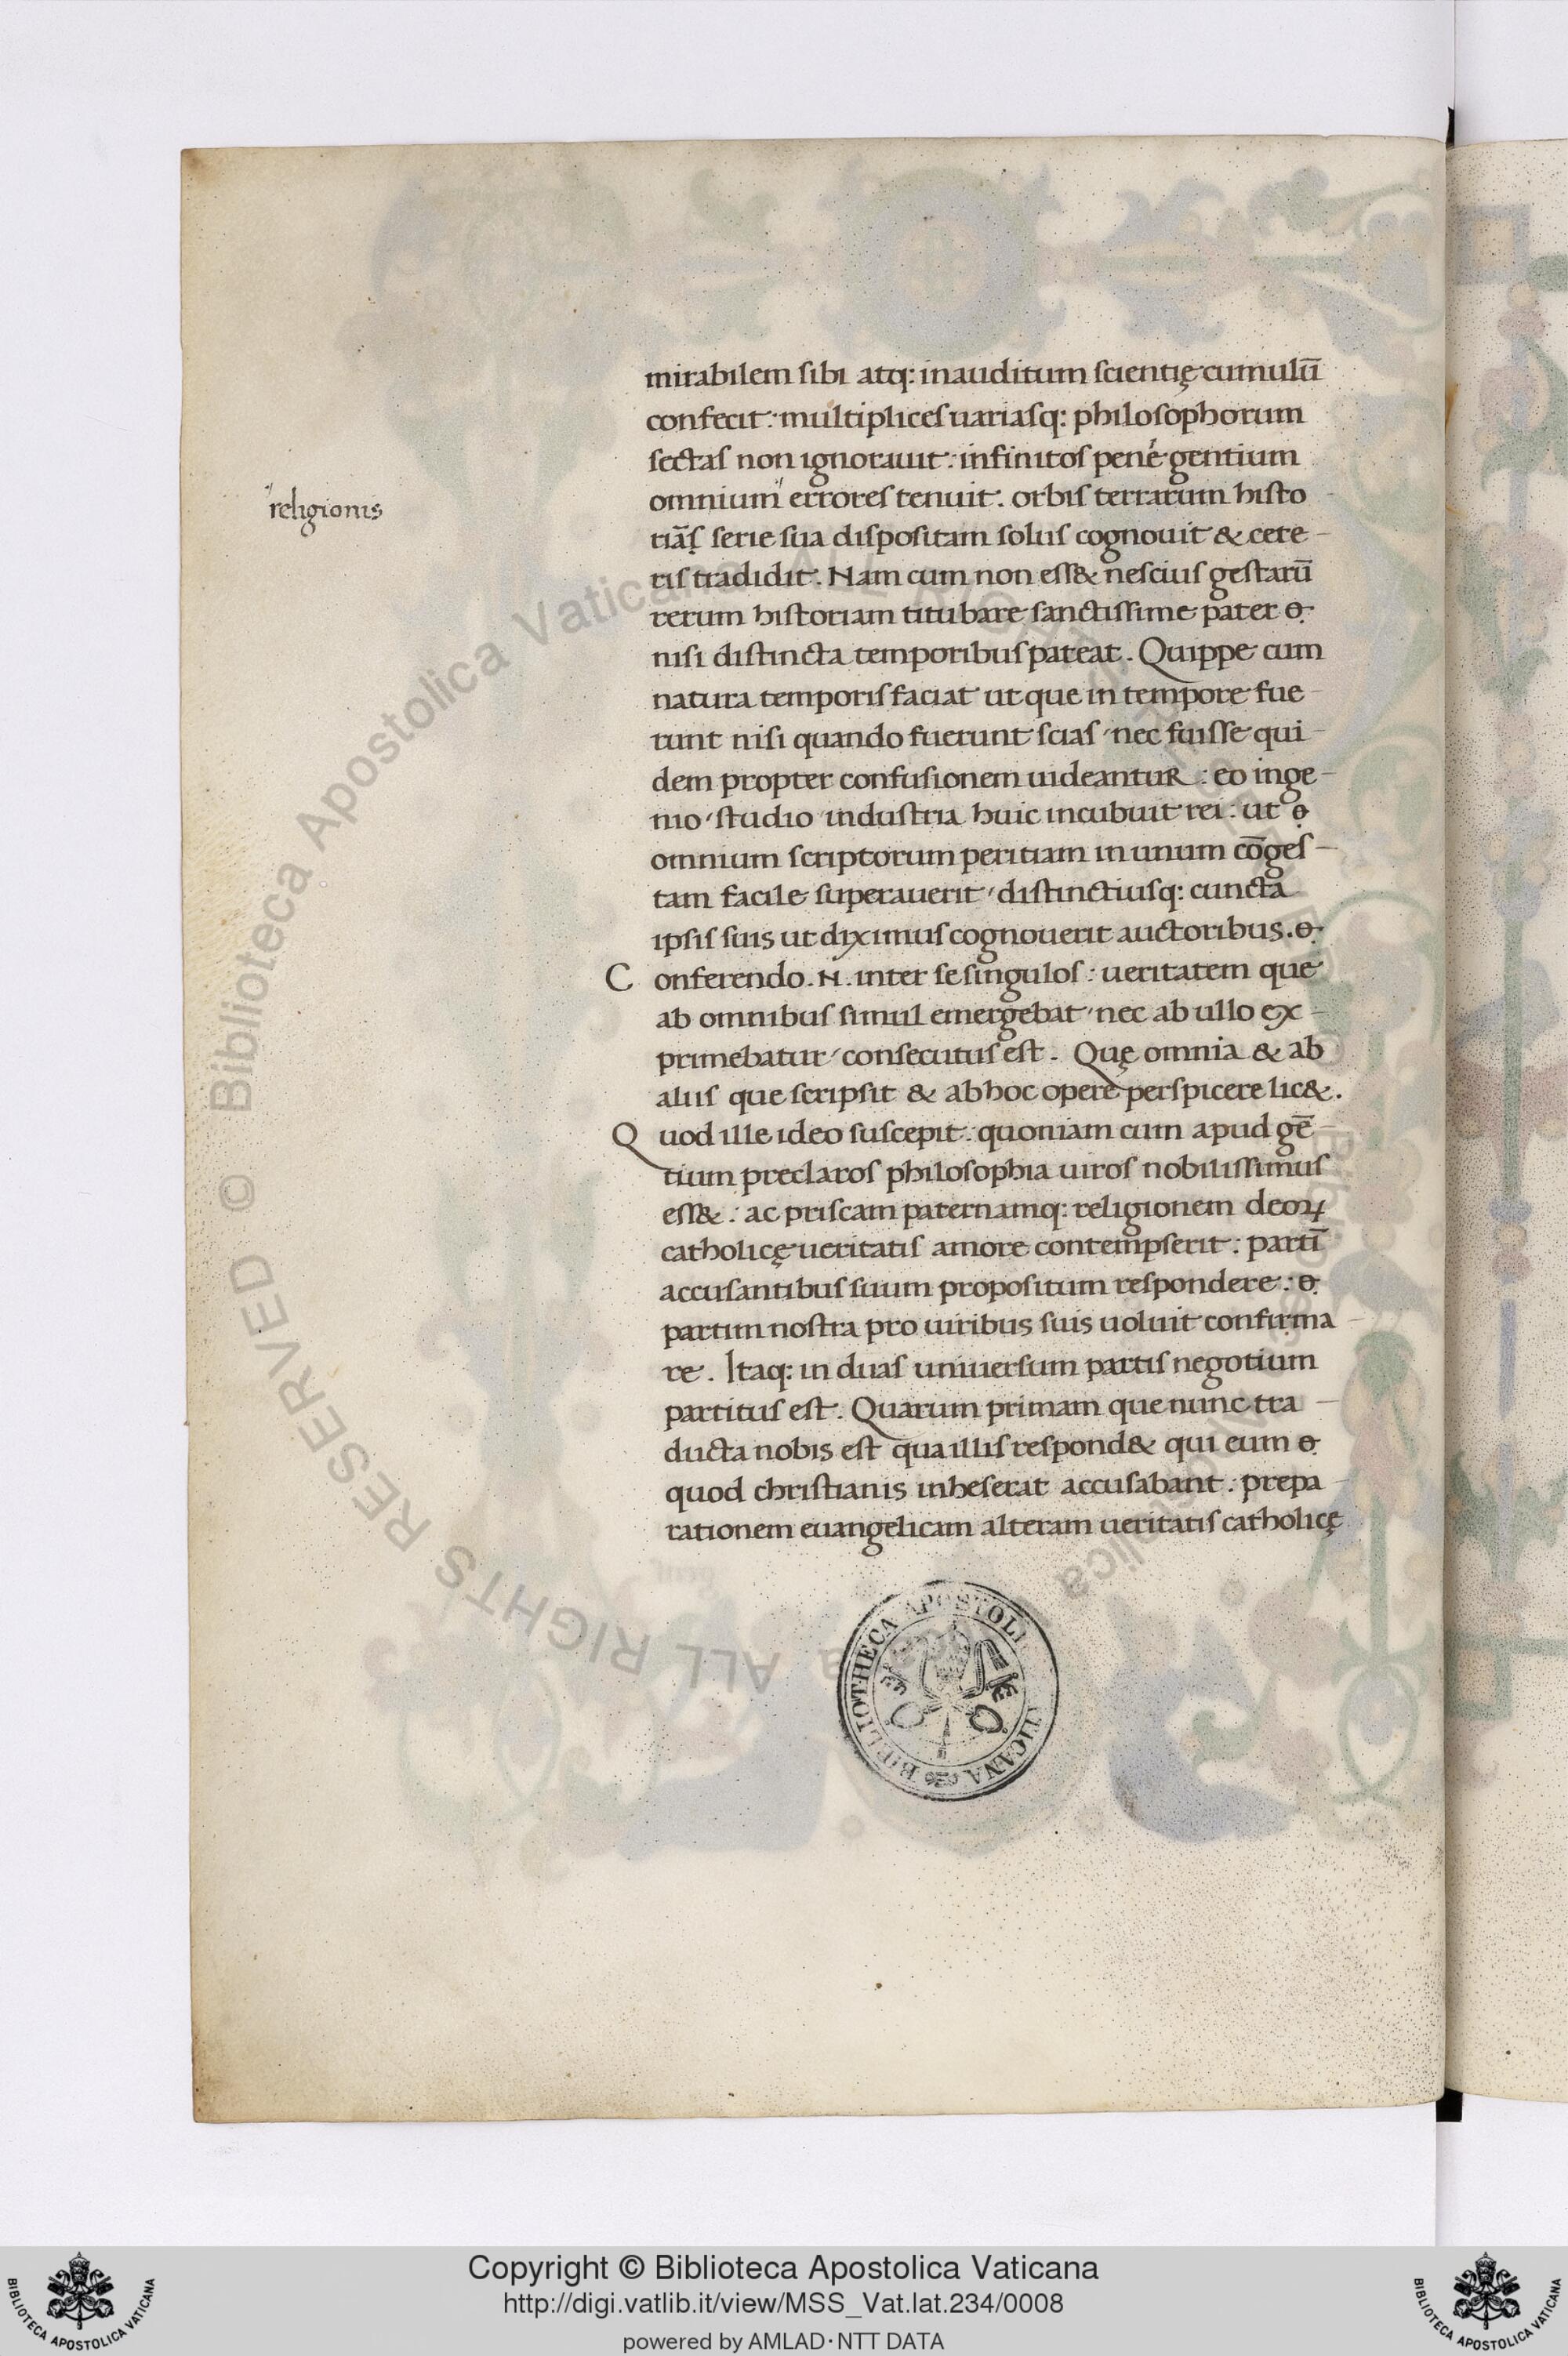 mirabilem sibi atq: inauditum scientię cumulū
confecit: multiplices uariasq: philosophorum
sectas non ignorauit: infinitos pené gentium
religionis
omnium" errores tenuit. orbis terrarum histo-
riā serie sua dispositam solus cognouit & cete-
ris tradidit. Nam cum non ess& nescius gestarū
rerum historiam titubare sanctissime pater
nisi distincta temporibus pateat. Quippe cum
natura temporis faciat ut que in tempore fue-
runt nisi quando fuerunt scias, nec fuisse qui-
dem propter confusionem uideantur: eo inge-
nio, studio industria huic incubuit rei: ut
omnium scriptorum peritiam in unum cōges-
tam facile superauerit, distinctiusq: cuncta
ipsis suis ut diximus cognouerit auctoribus.
Conferendo .N. inter se singulos: ueritatem que
ab omnibus simul emergebat, nec ab ullo ex-
primebatur, consecutus est. Quę omnia & ab
aliis que scripsit & ab hoc opere perspicere lic&.
Quod ille ideo suscepit: quoniam cum apud gē-
tium preclaros philosophia uiros nobilissimus
ess&: ac priscam paternamq: religionem deoꝝ
catholicę ueritatis amore contempserit: partī
accusantibus suum propositum respondere:
partim nostra pro uiribus suis uoluit confirma-
re. Itaq: in duas uniuersum partis negotium
partitus est. Quarum primam que nunc tra-
ducta nobis est qua illis respond& qui eum
quod christianis inheserat accusabant: prepa-
rationem euangelicam alteram ueritatis catholicę
BIBLIOTHECA APOSTOLICA VATICANA
© Biblioteca Apostolica Vaticana ALL RIGHTS RESERVED
Copyright © Biblioteca Apostolica Vaticana
http://digi.vatlib.it/view/MSS_Vat.lat.234/0008
powered by AMLAD·NTT DATA
BIBLIOTECA APOSTOLICA VATICANA
BIBLIOTECA APOSTOLICA VATICANA